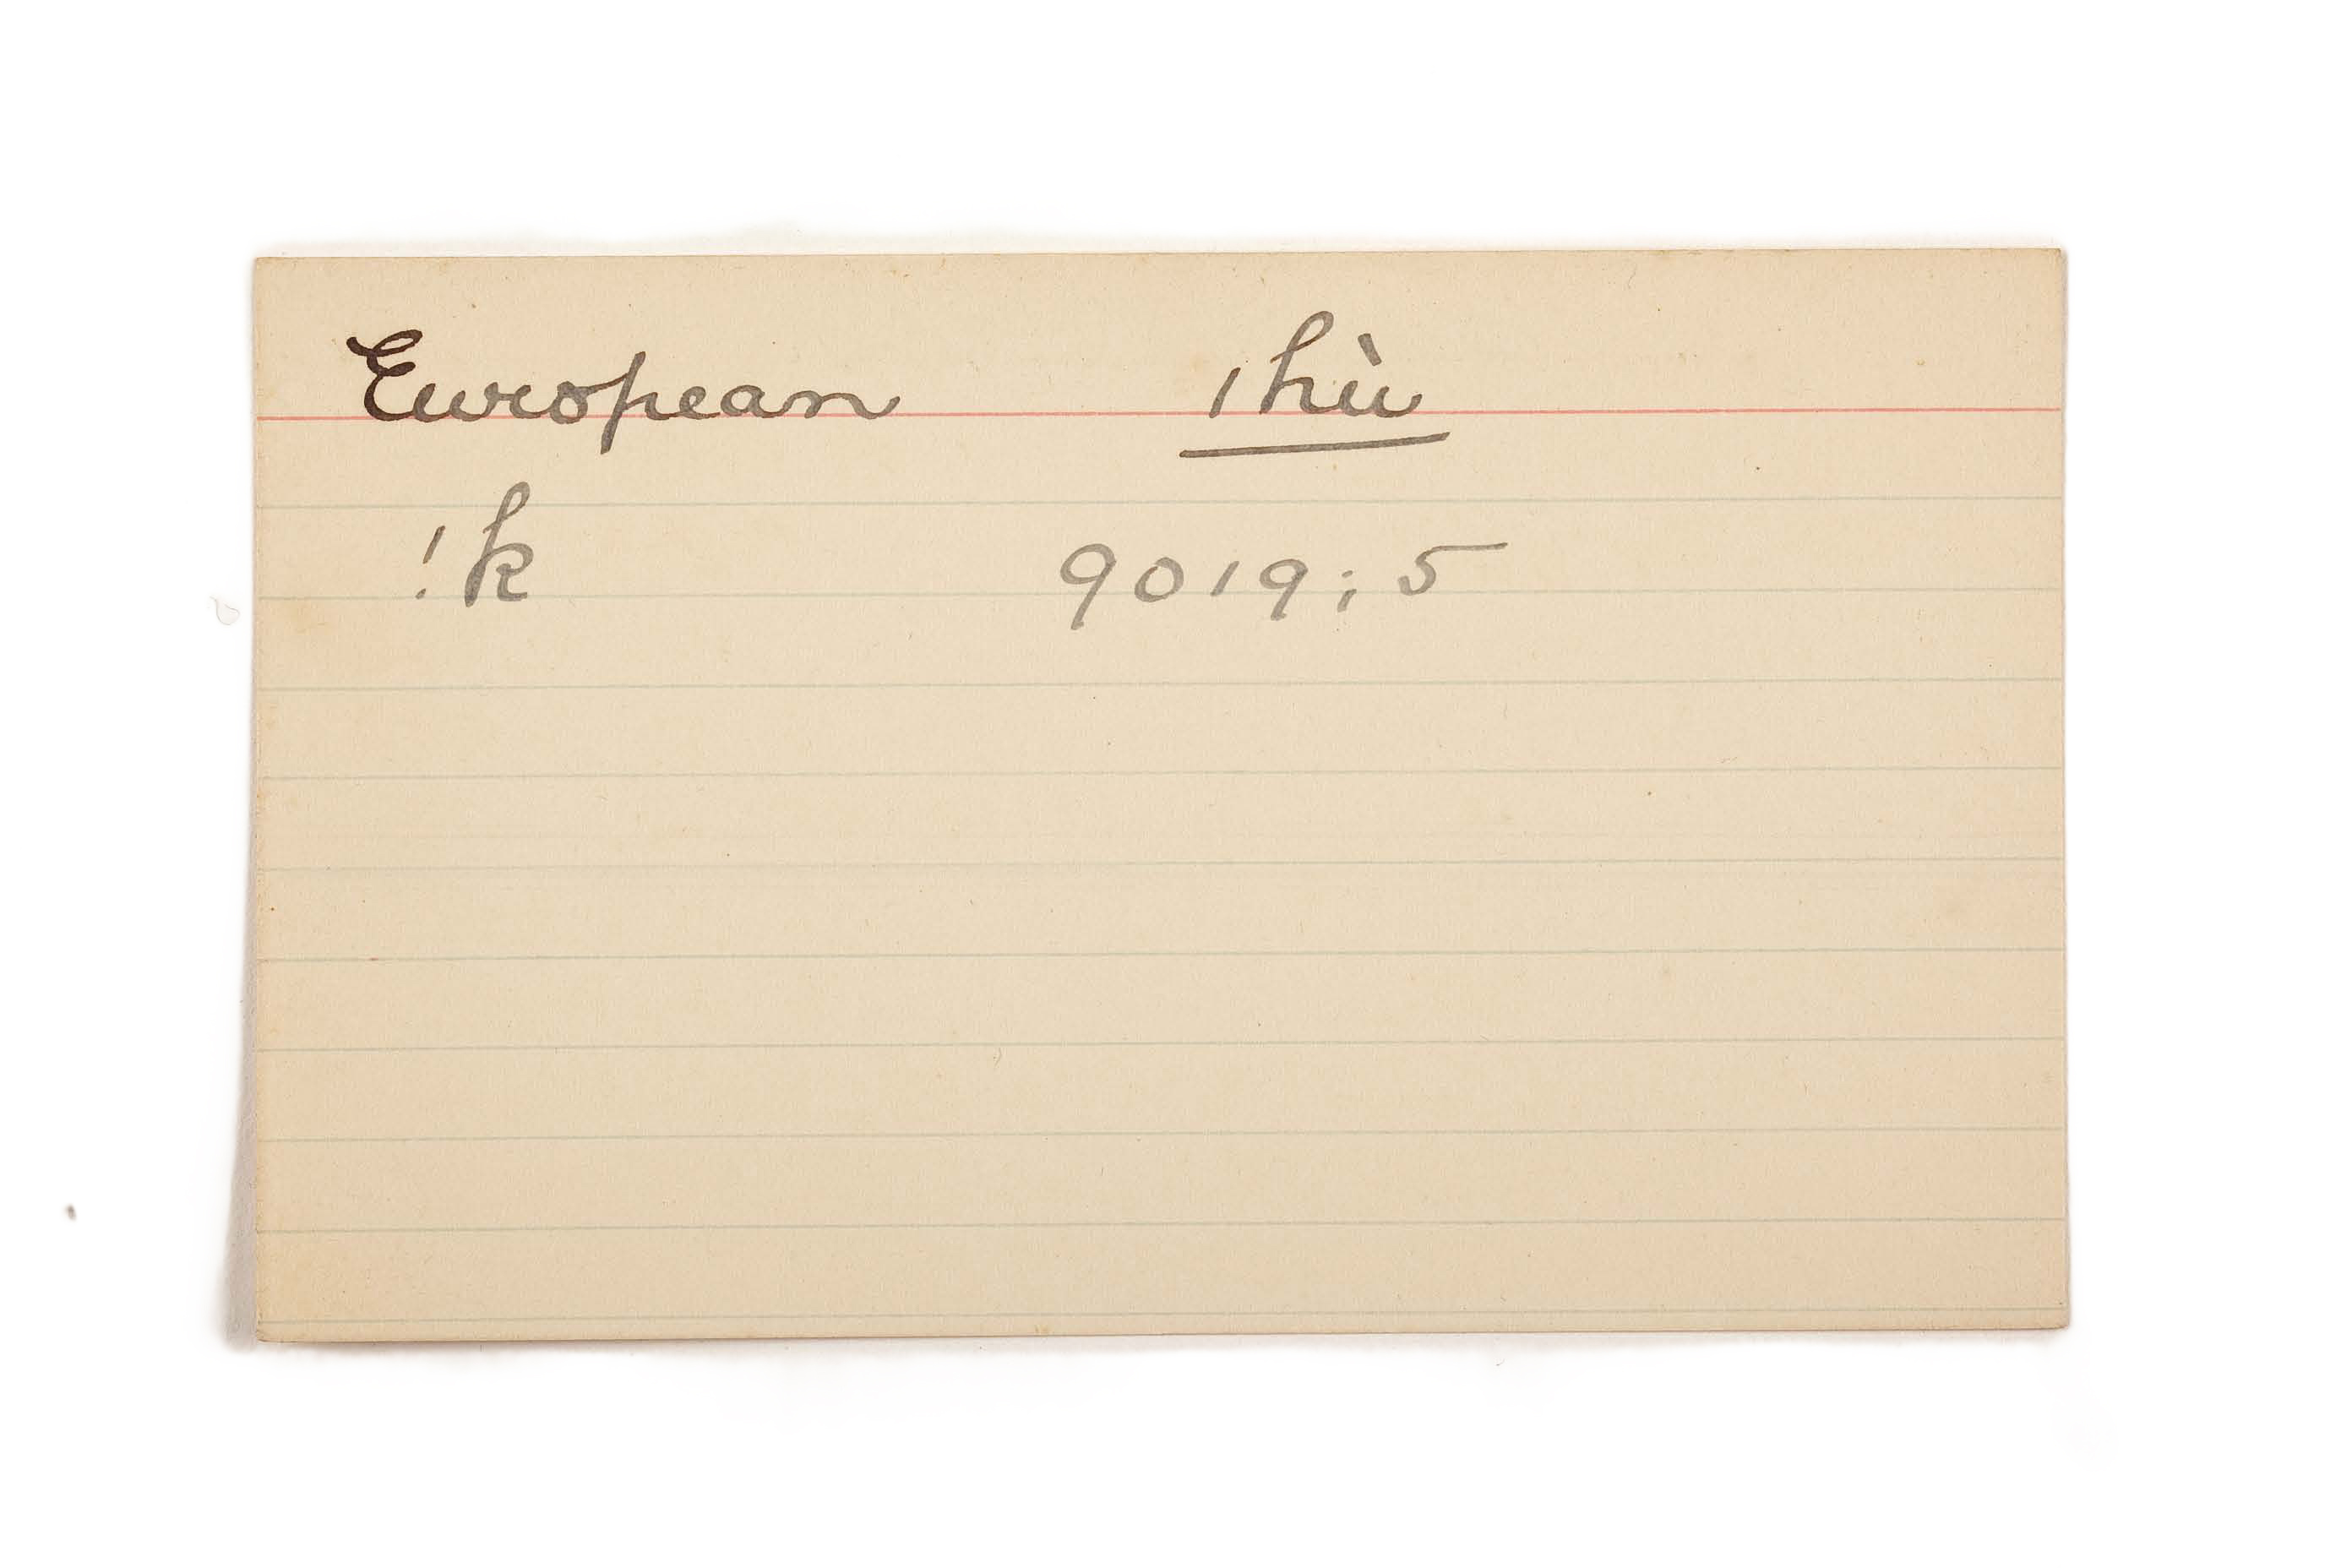 European ǀhù
!k 9019; 5